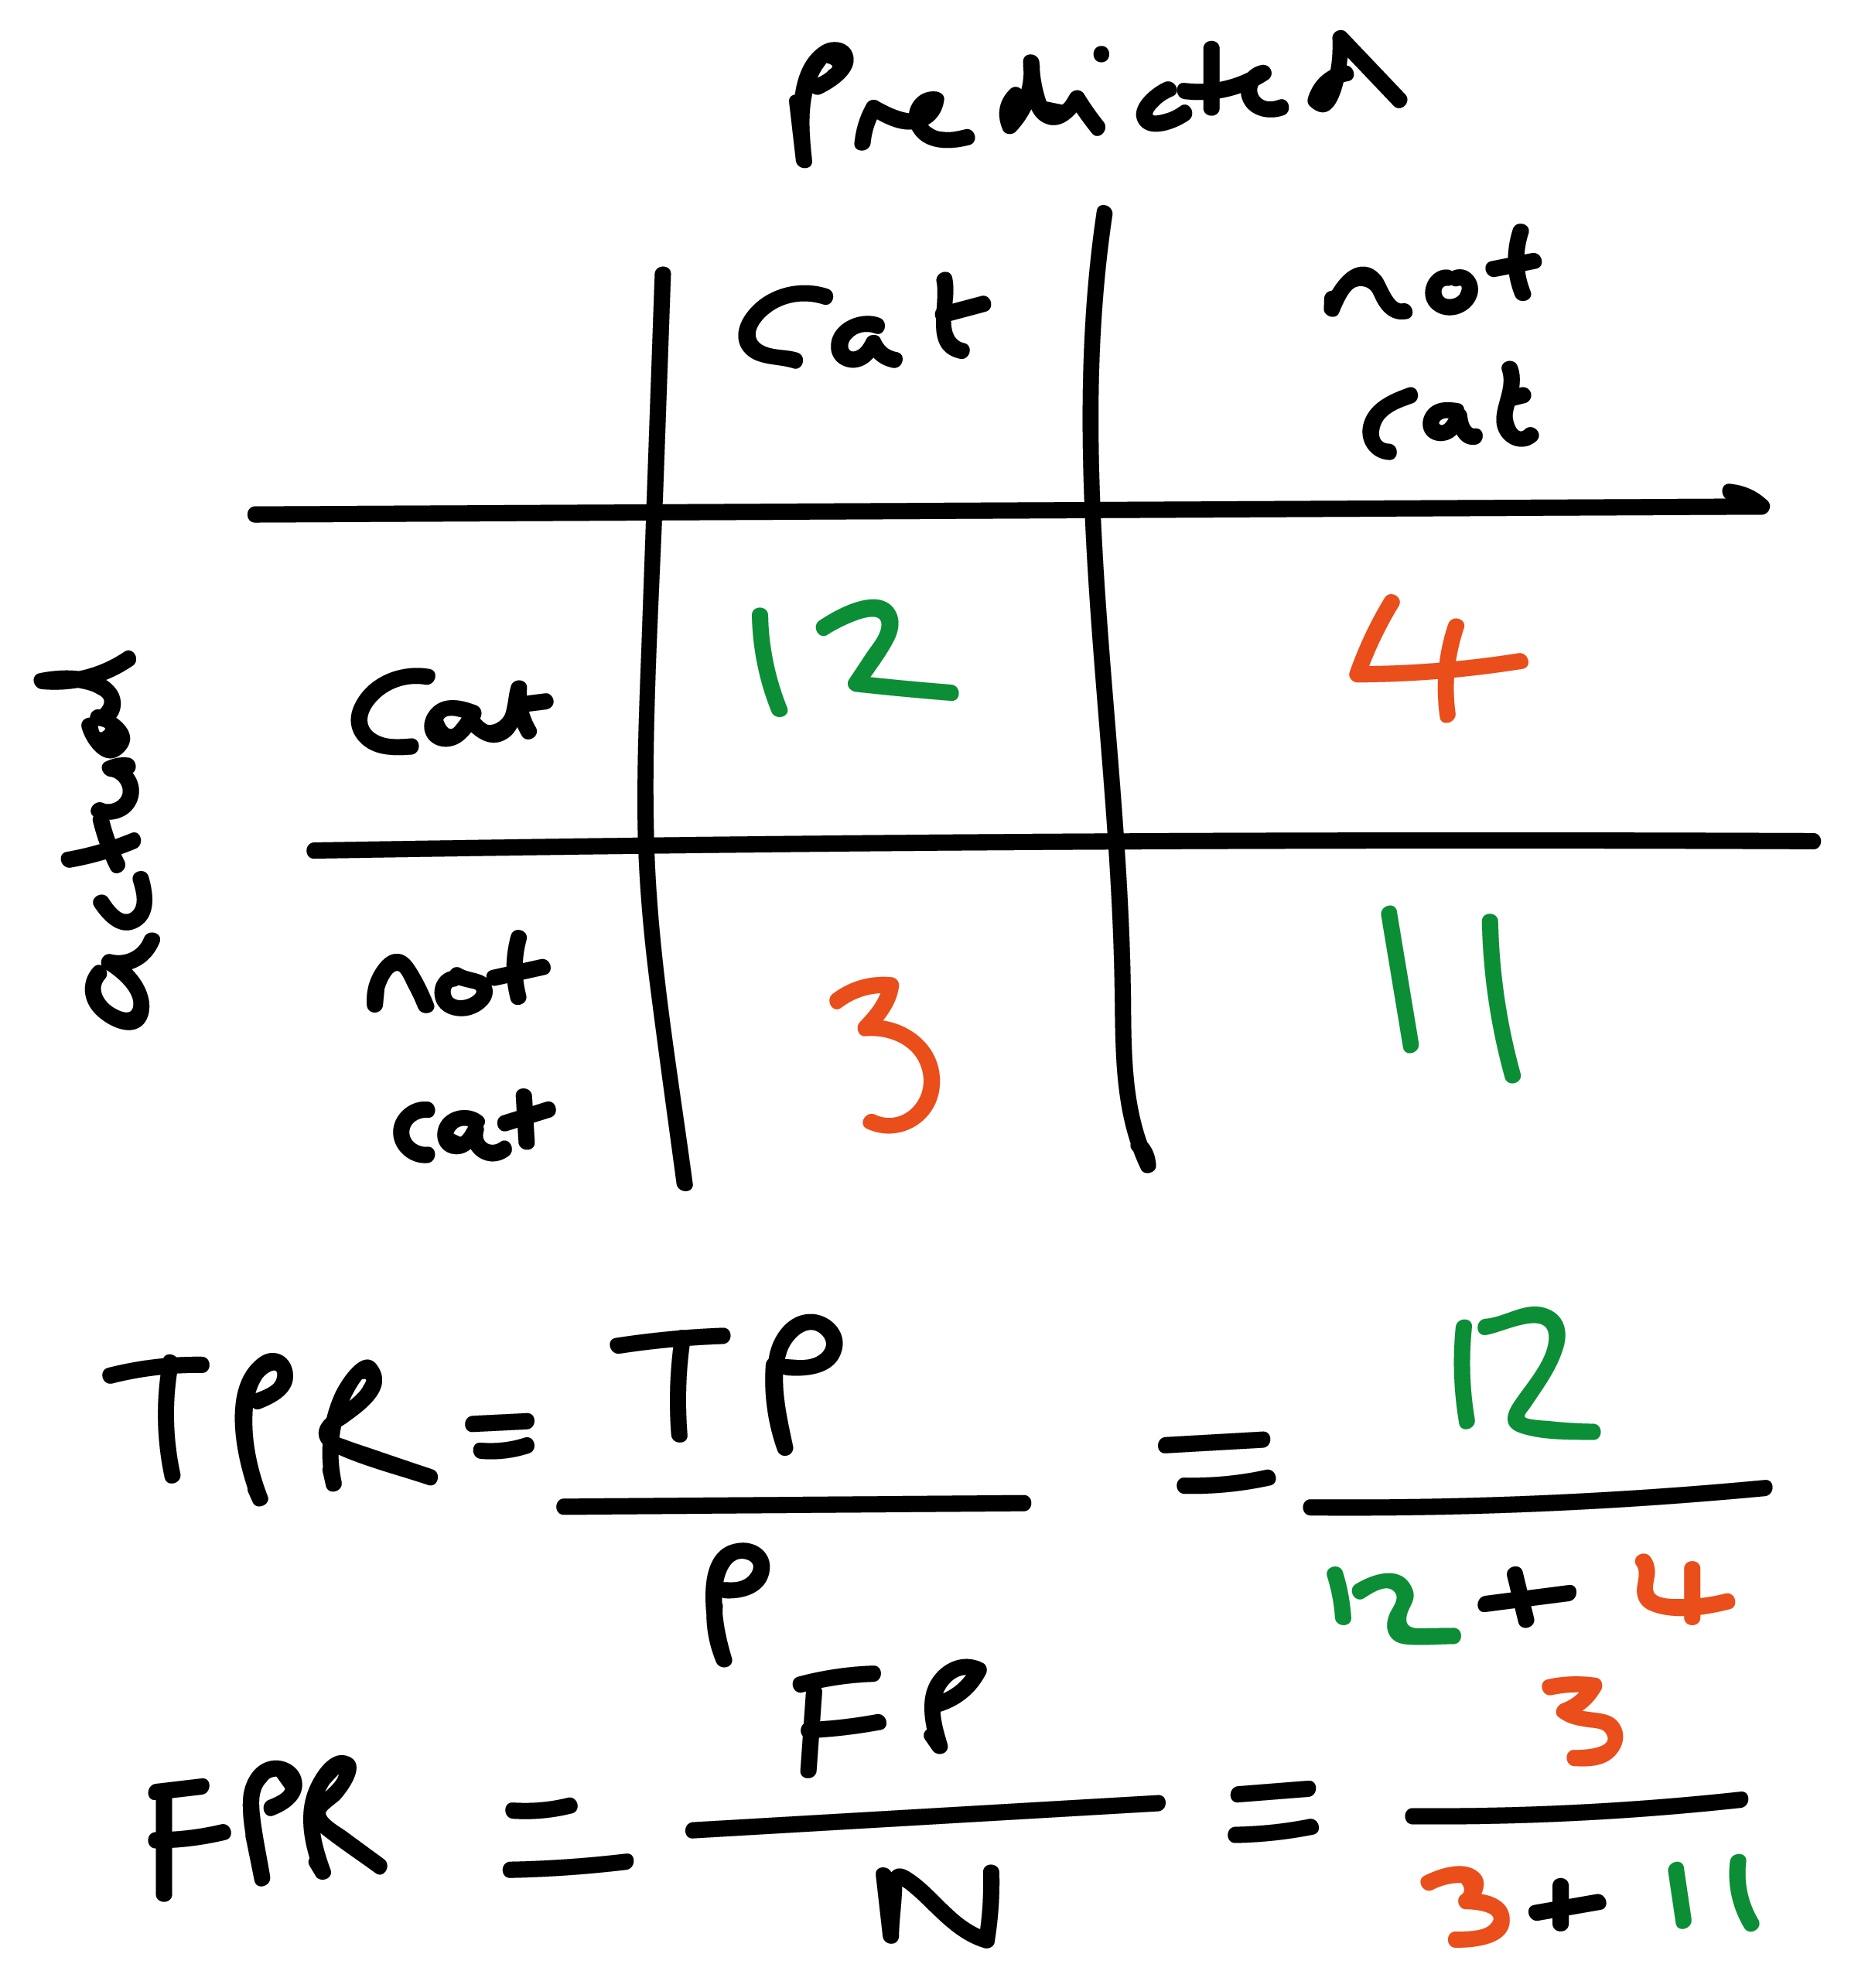 Predicted
Cat not
cat
actual
Cat 12 4
not
cat 3 11
TPR = TP / P = 12 / 12 + 4
FPR = FP / N = 3 / 3 + 11